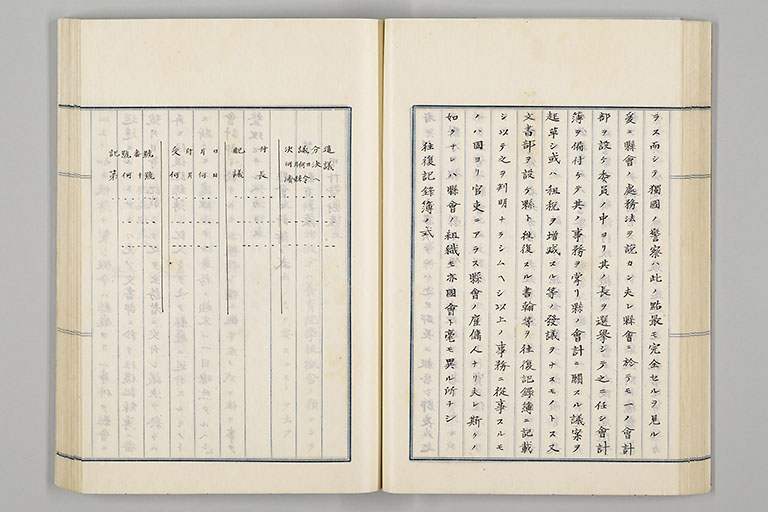 ラス而シテ獨國ノ警察ハ此ノ點最モ完全セルヲ見ル
爰ニ縣會ノ處務法ヲ說カン夫レ縣會ニ於テモ一ノ會計
部ヲ設ケ委員ノ中ヨリ其ノ長ヲ選擧シテ之ニ任シ會計
簿ヲ備付ケテ其ノ事務ヲ掌リ縣ノ會計ニ關スル議案ヲ
起草シ或ハ租稅ヲ增減スル等ノ發議ヲナスモノトス又
文書部ヲ設ケ縣ト往復スル書翰等ヲ往復記錄簿ニ記載
シ以テ之ヲ判明ナラシムヘシ以上ノ事務ニ從事スルモ
ノハ國ヨリ官吏ニアラス縣會ノ雇傭人ナリ夫レ斯クノ
如クナレハ縣會ノ組織モ亦國會ト毫モ異ル所ナシ
往復記錄簿ノ式
議
次何
付長
配議
月何日
付月
受何
號
番
號何
記第